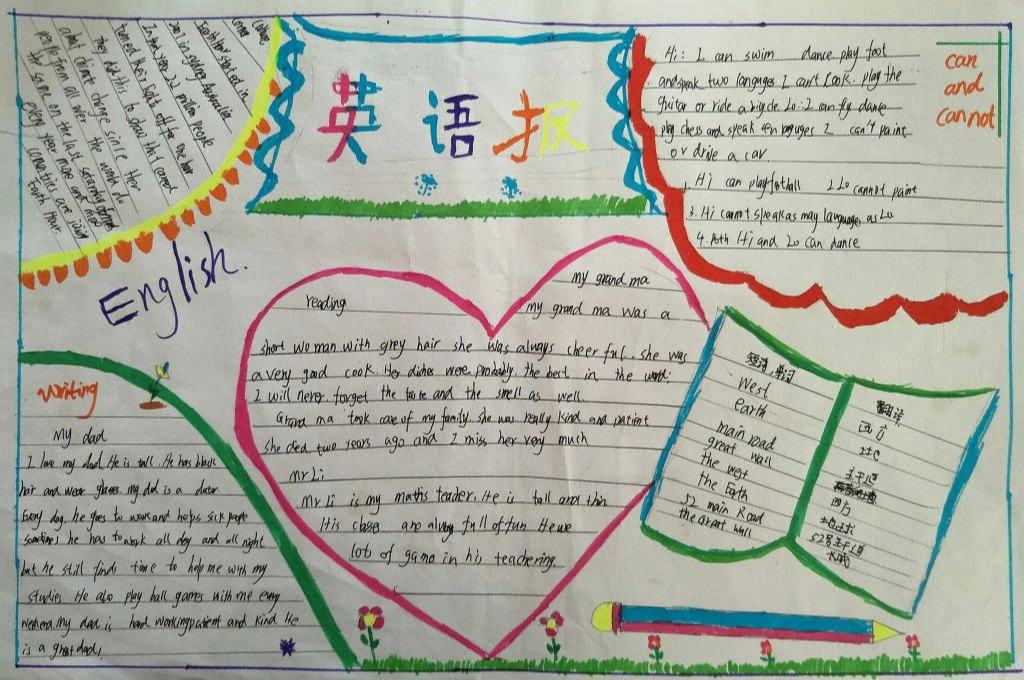 Culture
corner
Earth Hour started in
2007 in sydney Australia
In that year 2.2 million people
turned their lights off for one hour
They did this to show they cared
about climate change since then
people from all over the world do
the same on the last saturday of
every year more and more
countries are
Earth Hour.
英语报
can
and
cannot
Hi: I can swim dance play foot
and speak two languages I can't Look. play the
guitar or ride a bigcle Lo: I can fly dance
play chess and speak I can't paint
or drive a car
1. Hi can play football 2 Lo cannot paint
3. Hi cannot speak as may languages as Lo
4. Both Hi and Lo can dance
English.
reading
my grand ma
my grand ma was a
short wo man with grey hair she was always cheer ful. she was
a very good cook Her dishes were probably. the best in the world.
I will never forget the taste and the smell as well
Grand ma took care of my family. she was really kind and patient
she died two years ago and I miss her very much
mr Li
Mr Li is my maths teacher. He is tall and thin
His classes are always full of fun He use
lots of game in his teachering
短语 单词
West
earth
main road
great wall
the west
the Earth
52 main Road
the Great wall
翻译
西方
土地
主干道
西方
地球
52号主干道
长城
writing
My dad
I love my dad. He is tall. He has black
hair and wear glasses. my dad is a doctor
Every day, he goes to work and helps sick people
sometimes he has to work all day and all night
but he still finds time to help me with my
studies He also play ball games with me every
weekend. My dad is hard working patient and kind He
is a great dad!